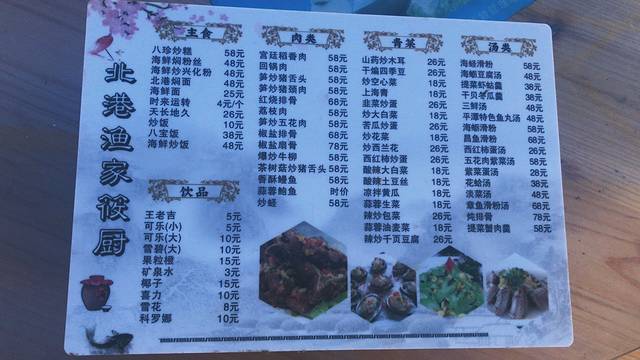 北港渔家筱厨
主食
八珍炒糕 58元
海鲜焖粉丝 48元
海鲜炒兴化粉 48元
北港焖面 48元
海鲜面 25元
时来运转 4元/个
天长地久 26元
炒饭 10元
八宝饭 38元
海鲜炒饭 48元
饮品
王老吉 5元
可乐(小) 5元
可乐(大) 10元
雪碧(大) 10元
果粒橙 15元
矿泉水 3元
椰子 15元
喜力 10元
雪花 8元
科罗娜 10元
肉类
宫廷稻香肉 58元
回锅肉 58元
笋炒猪舌头 58元
笋炒猪颈肉 58元
红烧排骨 68元
荔枝肉 58元
笋炒五花肉 58元
椒盐排骨 68元
椒盐扇骨 78元
爆炒牛柳 58元
茶树菇炒猪舌头 58元
香酥鳗鱼 58元
蒜蓉鲍鱼 时价
炒蛏 58元
青菜
山药炒木耳 26元
干煸四季豆 26元
炒空心菜 18元
上海青 18元
韭菜炒蛋 26元
炒大白菜 18元
苦瓜炒蛋 26元
炒花菜 18元
炒西兰花 26元
西红柿炒蛋 26元
酸辣大白菜 18元
酸辣土豆丝 18元
凉拌黄瓜 18元
蒜蓉生菜 18元
辣炒包菜 26元
蒜蓉油麦菜 18元
辣炒千页豆腐 26元
汤类
海蛏滑粉 58元
海蛎豆腐汤 48元
提菜虾蛄羹 38元
干贝冬瓜羹 38元
三鲜汤 48元
平潭特色鱼丸汤 48元
海蛎滑粉 58元
昌鱼滑粉 68元
西红柿蛋汤 26元
五花肉紫菜汤 58元
紫菜蛋汤 28元
花蛤汤 38元
淡菜汤 48元
章鱼滑粉汤 68元
炖排骨 78元
提菜蟹肉羹 58元